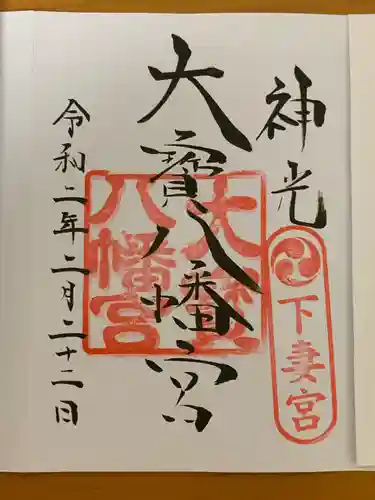 神光
下妻宮
大寳八幡宮
大寳
八幡宮
令和二年二月二十二日